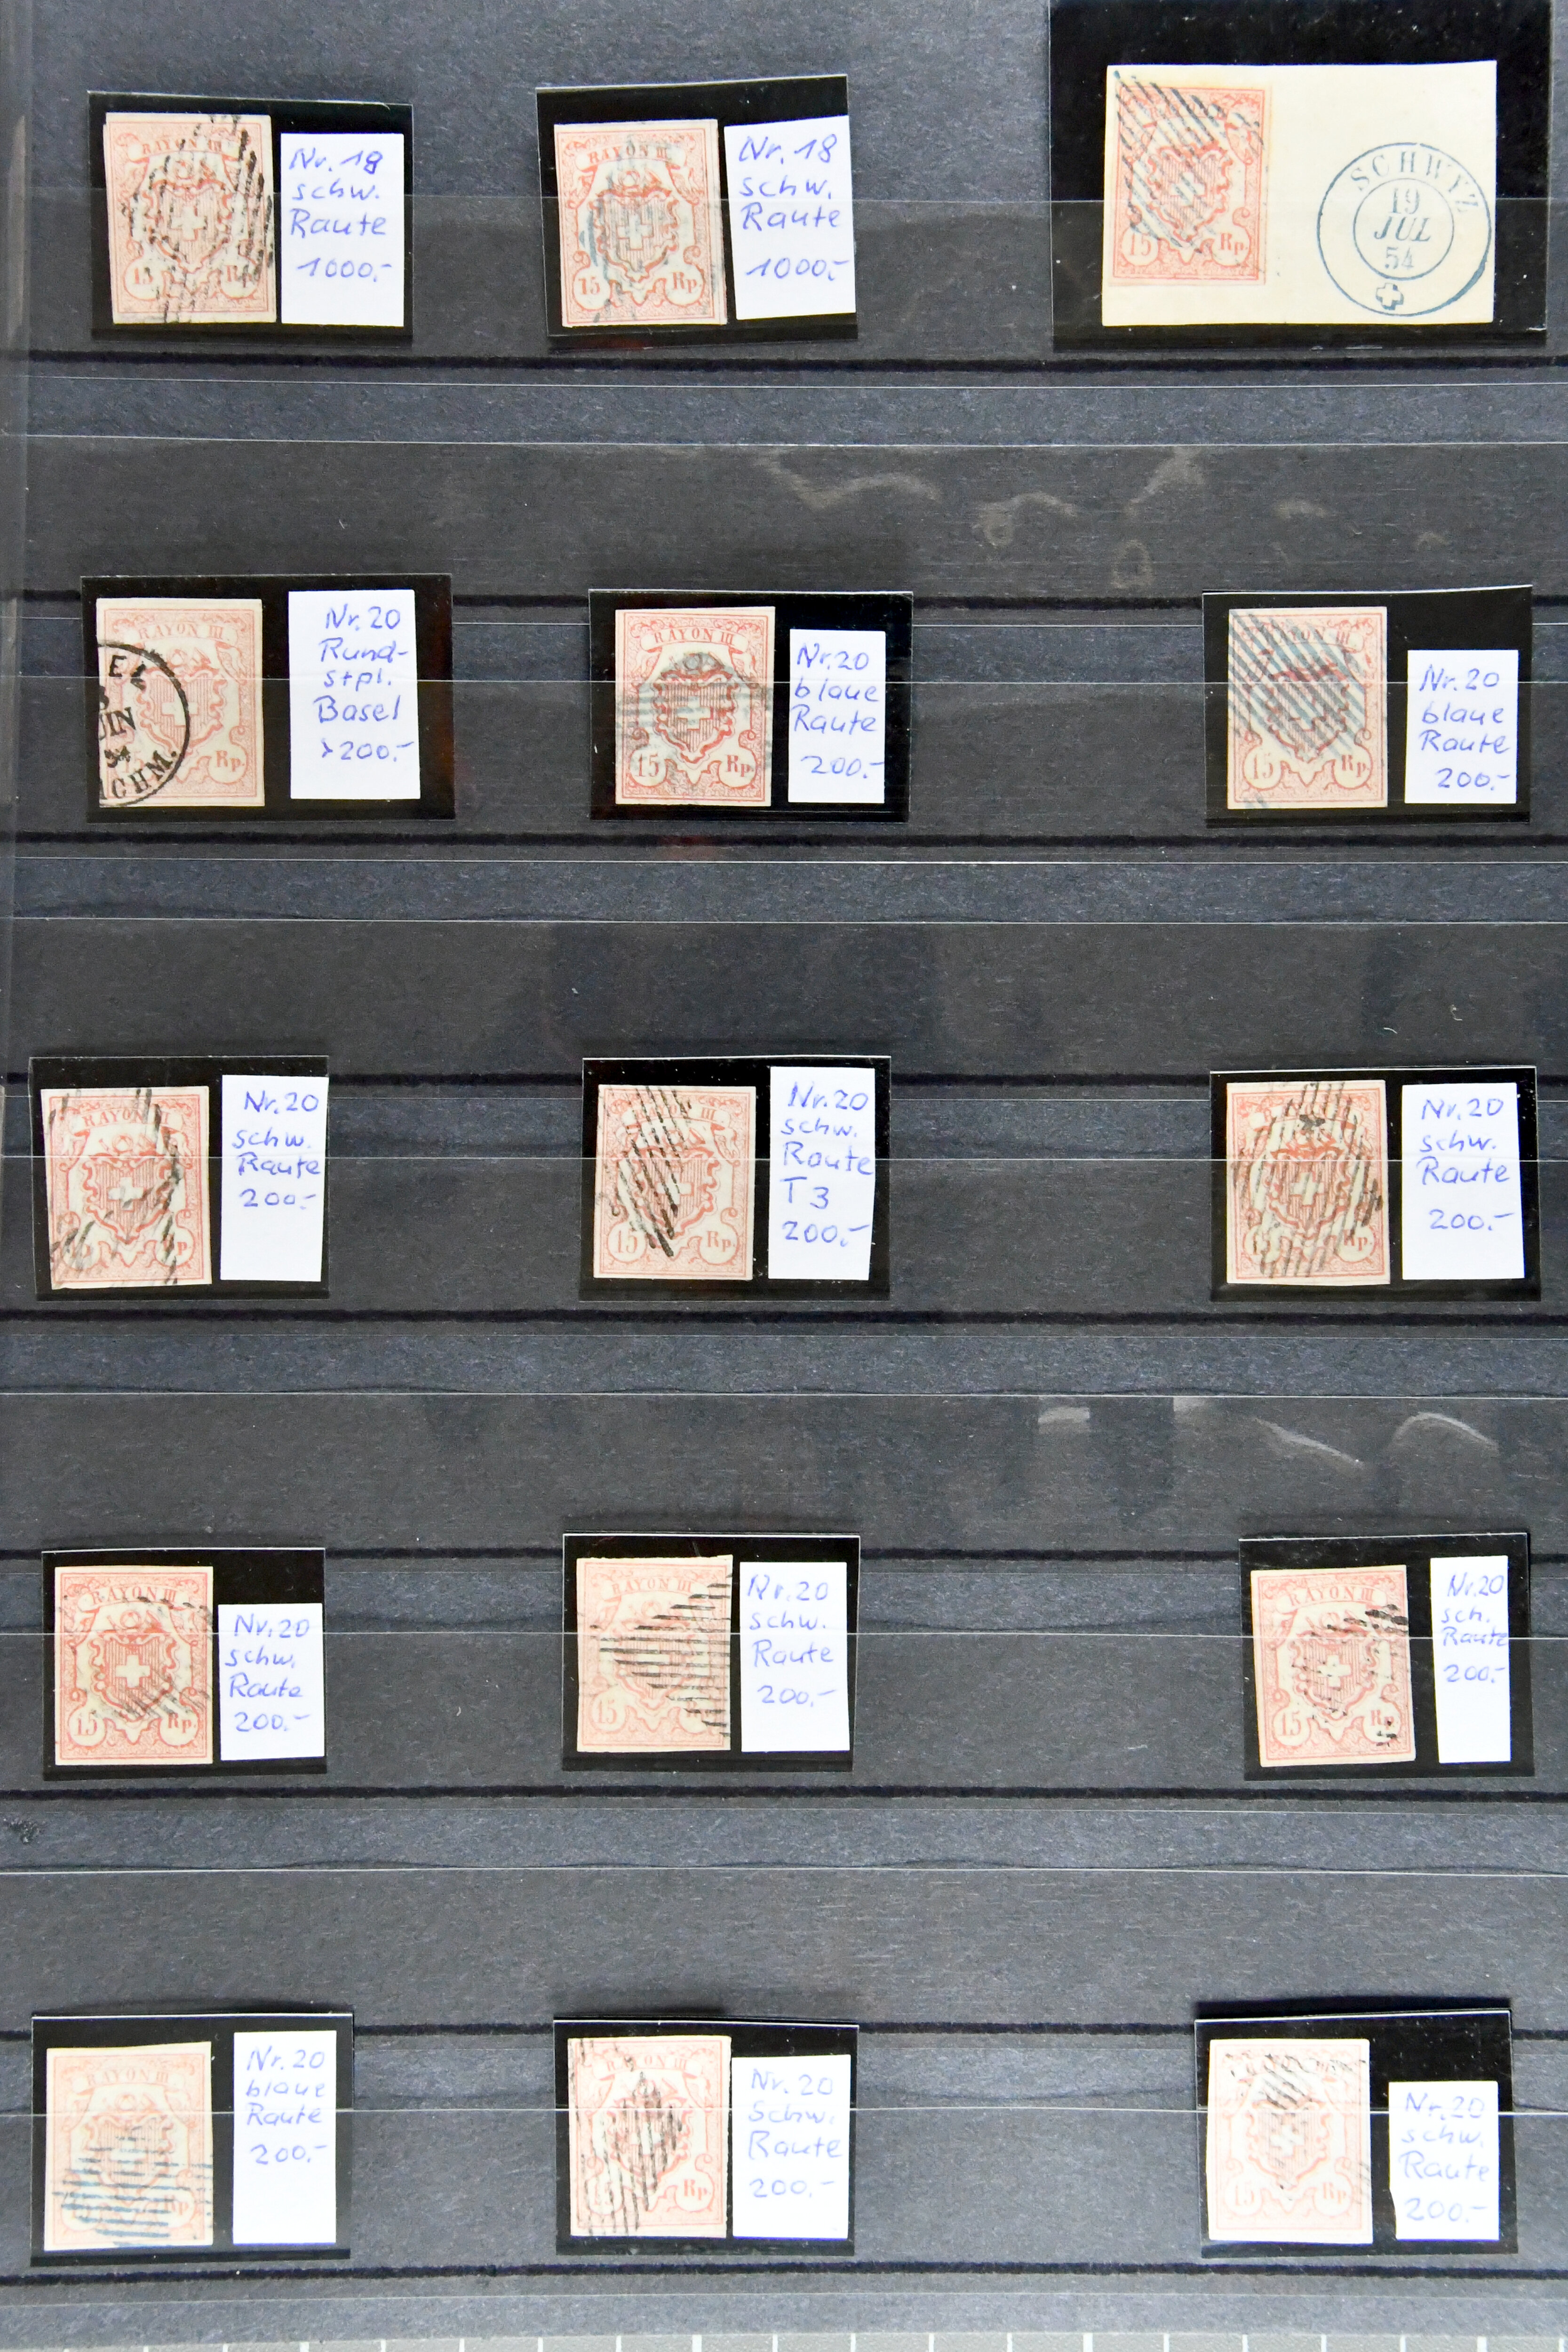 RAYON III
15 Rp.
Nr. 18
schw.
Raute
1000.-
RAYON III
15 Rp.
Nr. 18
schw.
Raute
1000.-
15 Rp.
SCHWYZ
19
JUL
54
RAYON III
Rp.
Nr. 20
Rund-
stpl.
Basel
>200.-
RAYON III
15 Rp.
Nr. 20
blaue
Raute
200.-
RAYON III
15 Rp.
Nr. 20
blaue
Raute
200.-
RAYON
Nr. 20
schw.
Raute
200.-
III
15 Rp.
Nr. 20
schw.
Raute
T3
200.-
Nr. 20
schw.
Raute
200.-
RAYON III
15 Rp.
Nr. 20
schw.
Raute
200.-
RAYON III
15
Nr. 20
schw.
Raute
200.-
RAYON III
15 Rp.
Nr. 20
sch.
Raute
200.-
RAYON III
Rp.
Nr. 20
blaue
Raute
200.-
RAYON III
15 Rp.
Nr. 20
Schw.
Raute
200.-
15 Rp.
Nr. 20
schw.
Raute
200.-